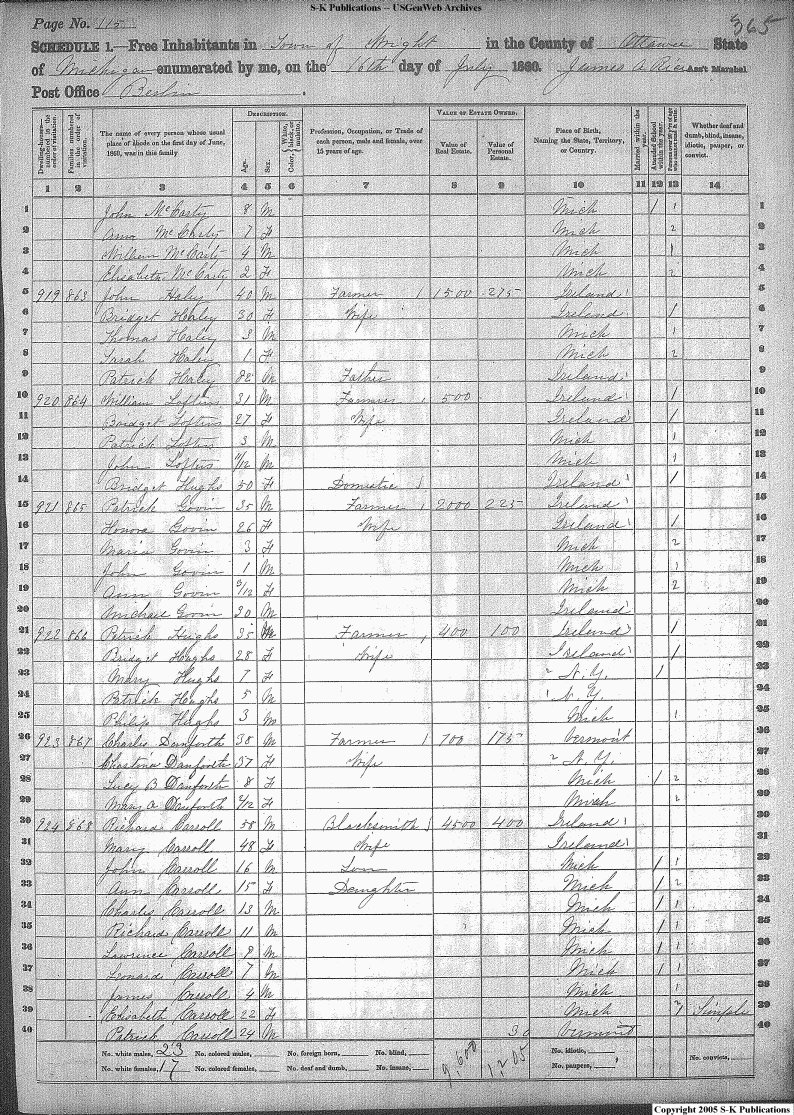 S-K Publications -- USGenWeb Archives
Page No. 115
365
SCHEDULE 1.—Free Inhabitants in Town of Wright in the County of Ottawa State
of Michigan enumerated by me, on the 16th day of July 1860. James A Rice Ass't Marshal
Post Office Berlin
Dwelling-houses—numbered in the order of visitation. Families numbered in the order of visitation. The name of every person whose usual place of abode on the first day of June, 1860, was in this family DESCRIPTION. Age. Sex. Color, White, black, or mulatto. Profession, Occupation, or Trade of each person, male and female, over 15 years of age. VALUE OF ESTATE OWNED. Value of Real Estate. Value of Personal Estate. Place of Birth, Naming the State, Territory, or Country. Married within the year. Attended School within the year. Persons over 20 y'rs of age who cannot read & write. Whether deaf and dumb, blind, insane, idiotic, pauper, or convict.
1 2 3 4 5 6 7 8 9 10 11 12 13 14
1 John McCarty 8 M Mich / 1 1
2 Anna McCarty 7 F Mich 2 2
3 William McCarty 4 M Mich 1 3
4 Elisabeth McCarty 2 F Mich 2 4
5 919 863 John Haley 40 M Farmer 1500 275 Ireland 5
6 Bridget Haley 30 F Wife Ireland / 6
7 Thomas Haley 3 M Mich 1 7
8 Sarah Haley 1 F Mich 2 8
9 Patrick Haley 82 M Father Ireland 9
10 920 864 William Loftus 31 M Farmer 500 Ireland / 10
11 Bridget Loftus 27 F Wife Ireland / 11
12 Patrick Loftus 3 M Mich 1 12
13 John Loftus 11/12 M Mich 1 13
14 Bridget Hughs 50 F Domestic Ireland / 14
15 921 865 Patrick Govin 35 M Farmer 2000 225 Ireland 15
16 Honora Govin 26 F Wife Ireland / 16
17 Maria Govin 3 F Mich 2 17
18 John Govin 1 M Mich 1 18
19 Ann Govin /12 F Mich 2 19
20 Michael Govin 30 M Ireland 20
21 922 866 Patrick Hughs 35 M Farmer 400 100 Ireland / 21
22 Bridget Hughs 28 F Wife Ireland / 22
23 Mary Hughs 7 F 2 N. Y. / 23
24 Patrick Hughs 5 M 1 N. Y. 24
25 Philip Hughs 3 M Mich 1 25
26 923 867 Charles Danforth 38 M Farmer 700 175 Vermont 26
27 Danforth 37 F Wife 2 N. Y. 27
28 Lucy B Danforth 8 F Mich / 2 28
29 Mary A Danforth /12 F Mich 2 29
30 924 868 Richard Carroll 58 M Blacksmith 4500 400 Ireland 30
31 Mary Carroll 48 F Wife Ireland 31
32 John Carroll 16 M Son Mich / 1 32
33 Ann Carroll 15 F Daughter Mich / 2 33
34 Charles Carroll 13 M Mich / 1 34
35 Richard Carroll 11 M Mich / 1 35
36 Lawrence Carroll 9 M Mich / 1 36
37 Leonard Carroll 7 M Mich / 1 37
38 James Carroll 4 M Mich 1 38
39 Elisabeth Carroll 22 F Mich 2 Simple 39
40 Patrick Carroll 24 M 30 Vermont 40
No. white males, 23 No. colored males, No. foreign born, No. blind, 9,600 1,205 No. idiotic, No. convicts,
No. white females, 17 No. colored females, No. deaf and dumb, No. insane, No. paupers,
Copyright 2005 S-K Publications